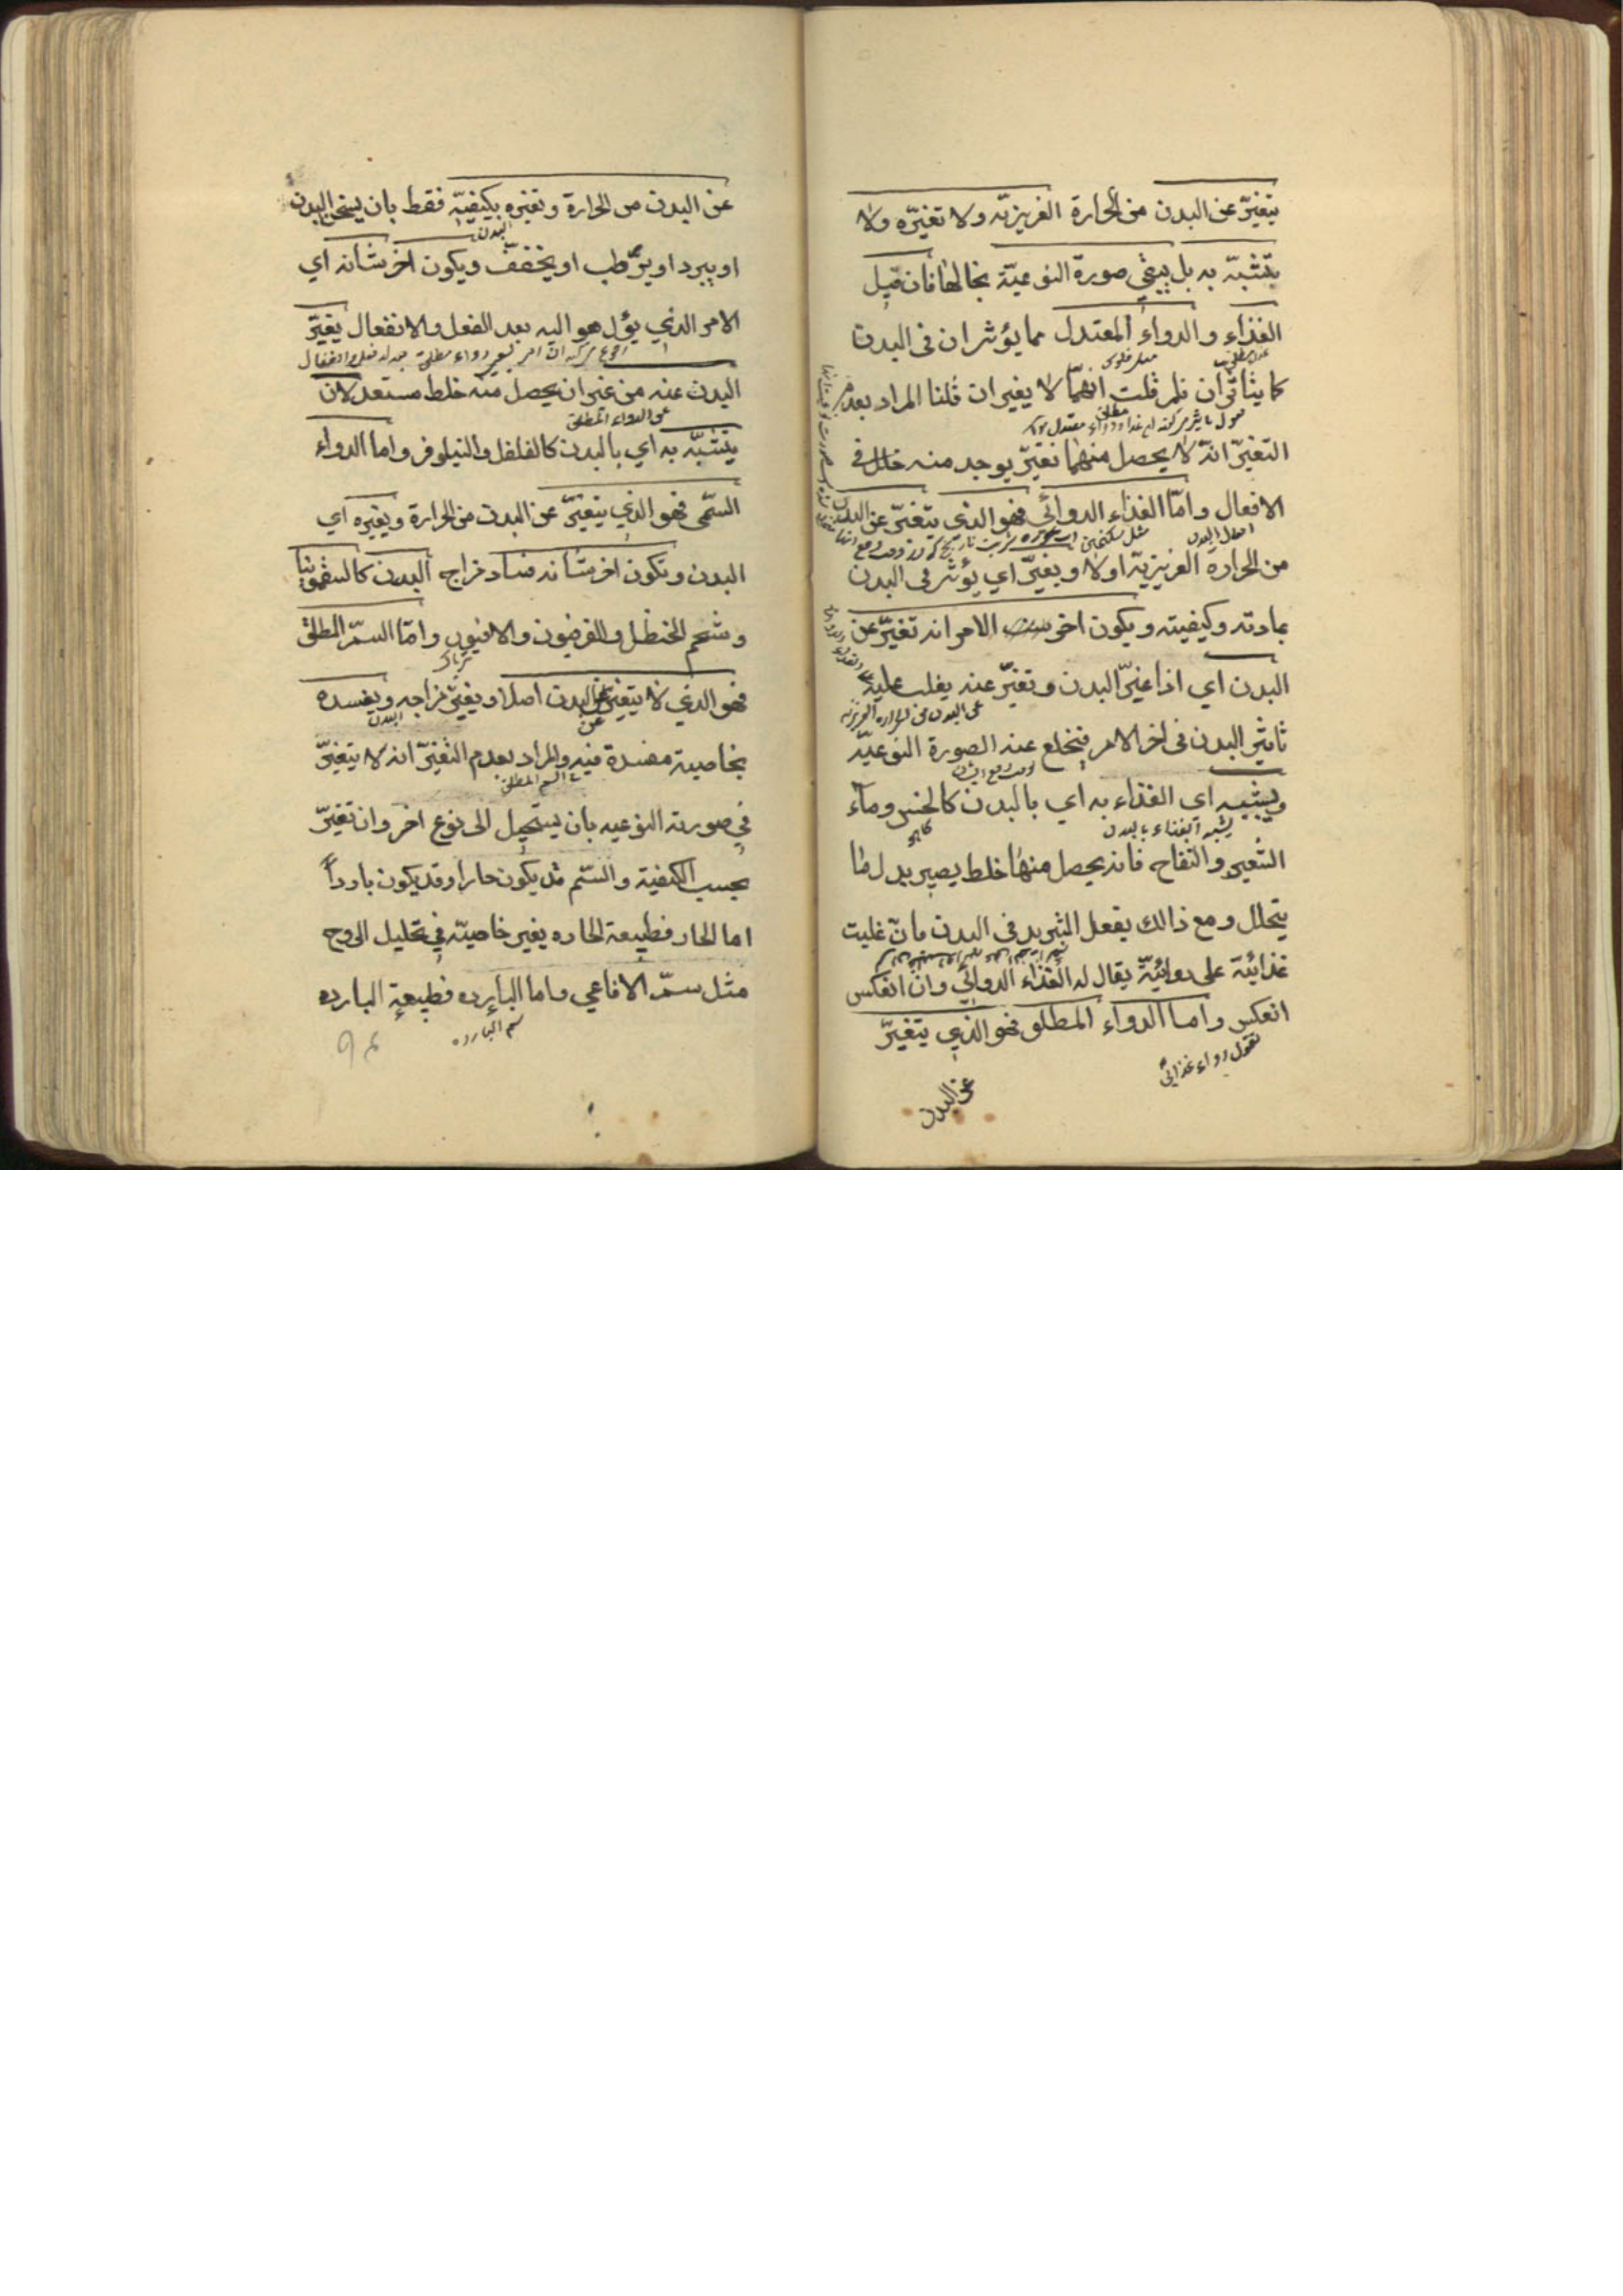 يتغيّر عن البدن من الحرارة الغريزيّة ولا تغيّره ولا
يتشبّه به بل يبقي صورة النوعيّة بحالها فان قيل
الغذاء والدواء المعتدل مما يؤثران في البدن
كما يتأثران فلم قلت انهما لا يغيران قلنا المراد بعدم
التغيّر انه لا يحصل منهما تغيّر يوجد منه خلل في
الافعال واما الغذاء الدوائي فهو الذي يتغيّر عن البدن
افعال البدن
من الحرارة الغريزيّة اولا ويغيّر اي يؤثر في البدن
بمادته وكيفيته ويكون اخر الامر انه تغيّر عن
البدن اي اذا غيّر البدن وتغيّر عنه يغلب عليه
عن البدن من الحرارة الغريزيه
تاثير البدن في اخر الامر فيخلع عنه الصورة النوعيّة
ويشبه اي الغذاء به اي بالبدن كالخس وماء
يشبه الغذاء بالبدن
كاهو
الشعير والتفاح فانه يحصل منها خلط يصير بدل لما
يتحلل ومع ذالك يفعل التبريد في البدن فان غلبت
غذائيّة على دوائيّة يقال له الغذاء الدوائي وان انعكس
انعكس واما الدواء المطلق فهو الذي يتغيّر
نقول دواء غذائي
عن البدن
عن البدن من الحرارة وتغيره بكيفيّة فقط بان يسخن البدن
البدن
او يبرد او يرطب او يخفف ويكون اخر شانه اي
الامر الذي يؤل هو اليه بعد الفعل والانفعال يغيّر
البدن عنه من غير ان يحصل منه خلط مستعد لان
عن الدواء المطلق
يتشبّه به اي بالبدن كالفلفل والنيلوفر واما الدواء
السمّى فهو الذي يتغيّر عن البدن من الحرارة ويغيره اي
البدن وتكون اخر شانه فساد مزاج البدن كالسقمونيا
وشحم الحنظل والفرفيون والافيون واما السمّ المطلق
ترياك
فهو الذي لا يتغير عن البدن اصلا ويغيّر مزاجه ويفسده
عن
البدن
بخاصية مفسدة فيه والمراد بعدم التغيّر انه لا يتغيّر
السم المطلق
في صورته النوعيه بان يستحيل الى نوع اخر وان تغيّر
بحسب الكيفية والسّم قد يكون حارا وقد يكون بارداً
اما الحار فطبيعة الحاره يغير خاصيته في تحليل الروح
مثل سمّ الافاعي واما البارده فطبيعة البارده
سم البارده